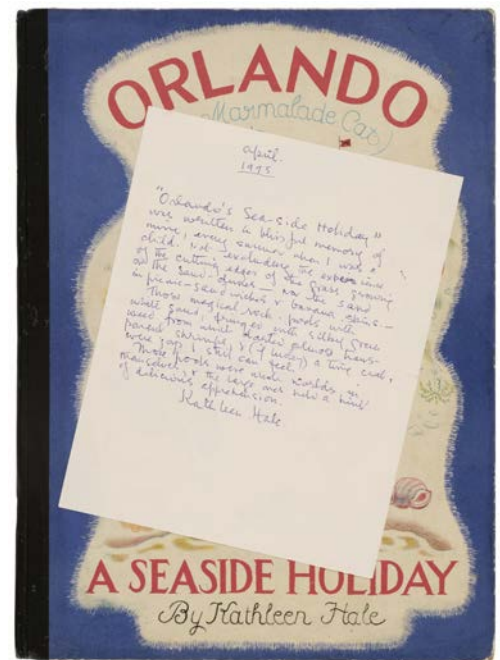 ORLANDO
Marmalade Cat)
April.
1995
"Orlando's Sea-side Holiday"
was written in blissful memory of
mine, every summer when I was a
child. Not excluding the experience
of the cutting edges of the grass growing
on the sand-dunes – nor the sand
in picnic-sandwiches & banana skins. –
Those magical rock-pools with
white sand, fringed with silky green
weed from which darted almost trans-
parent shrimps, & (if lucky) a tiny crab,
were joy I still can feel.
Those pools were worlds in
themselves, & the large ones held a hint
of delicious apprehension.
Kathleen Hale
A SEASIDE HOLIDAY
By Kathleen Hale